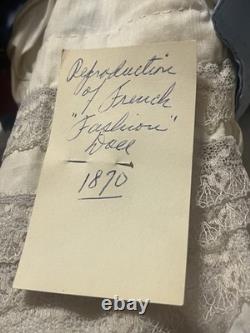 Reproduction
of French
"Fashion"
Doll
1870
ebay